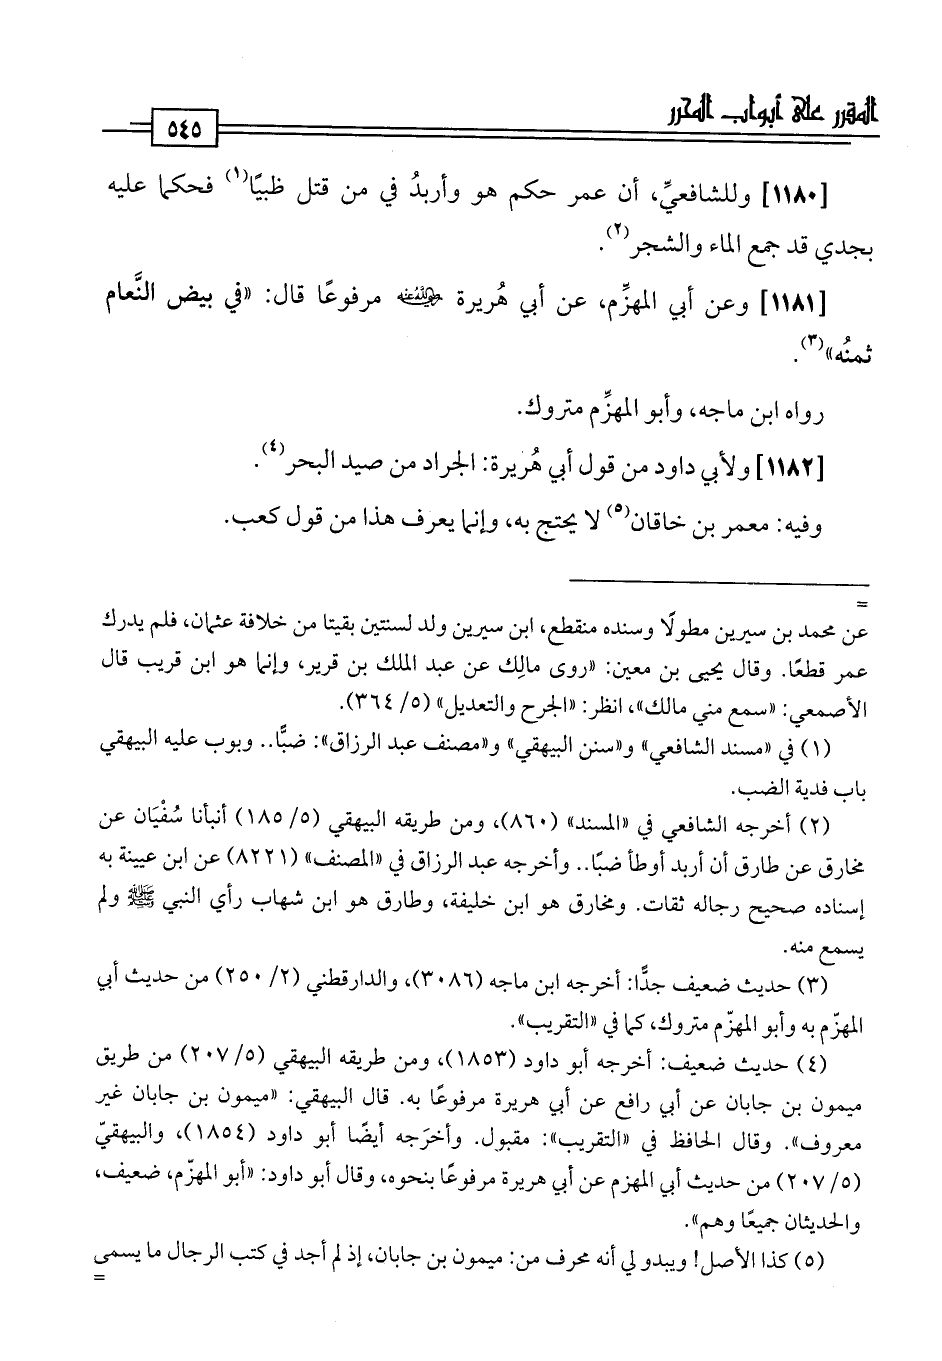 المقرر على أبواب المحرر
٥٤٥
[١١٨٠] وللشافعيِّ، أن عمر حكم هو وأربدُ في من قتل ظبيًا(١) فحكما عليه
بجدي قد جمع الماء والشجر(٢).
[١١٨١] وعن أبي المهزِّم، عن أبي هُريرة رضي الله عنه مرفوعًا قال: «في بيض النَّعام
ثمنُه»(٣).
رواه ابن ماجه، وأبو المهزِّم متروك.
[١١٨٢] ولأبي داود من قول أبي هُريرة: الجراد من صيد البحر(٤).
وفيه: معمر بن خاقان(٥) لا يحتج به، وإنما يعرف هذا من قول كعب.
=
عن محمد بن سيرين مطولًا وسنده منقطع، ابن سيرين ولد لسنتين بقيتا من خلافة عثمان، فلم يدرك
عمر قطعًا. وقال يحيى بن معين: «روى مالِك عن عبد الملك بن قرير، وإنما هو ابن قريب قال
الأصمعي: «سمع مني مالك»، انظر: «الجرح والتعديل» (٥/ ٣٦٤).
(١) في «مسند الشافعي» و«سنن البيهقي» و«مصنف عبد الرزاق»: ضبًّا.. وبوب عليه البيهقي
باب فدية الضب.
(٢) أخرجه الشافعي في «المسند» (٨٦٠)، ومن طريقه البيهقي (٥/ ١٨٥) أنبأنا سُفْيَان عن
مخارق عن طارق أن أربد أوطأ ضبًا.. وأخرجه عبد الرزاق في «المصنف» (٨٢٢١) عن ابن عيينة به
إسناده صحيح رجاله ثقات. ومخارق هو ابن خليفة، وطارق هو ابن شهاب رأي النبي ﷺ ولم
يسمع منه.
(٣) حديث ضعيف جدًّا: أخرجه ابن ماجه (٣٠٨٦)، والدارقطني (٢/ ٢٥٠) من حديث أبي
المهزّم به وأبو المهزّم متروك، كما في «التقريب».
(٤) حديث ضعيف: أخرجه أبو داود (١٨٥٣)، ومن طريقه البيهقي (٥/ ٢٠٧) من طريق
ميمون بن جابان عن أبي رافع عن أبي هريرة مرفوعًا به. قال البيهقي: «ميمون بن جابان غير
معروف». وقال الحافظ في «التقريب»: مقبول. وأخرَجه أيضًا أبو داود (١٨٥٤)، والبيهقيّ
(٥/ ٢٠٧) من حديث أبي المهزم عن أبي هريرة مرفوعًا بنحوه، وقال أبو داود: «أبو المهزّم، ضعيف،
والحديثان جميعًا وهم».
(٥) كذا الأصل! ويبدو لي أنه محرف من: ميمون بن جابان، إذ لم أجد في كتب الرجال ما يسمى
=